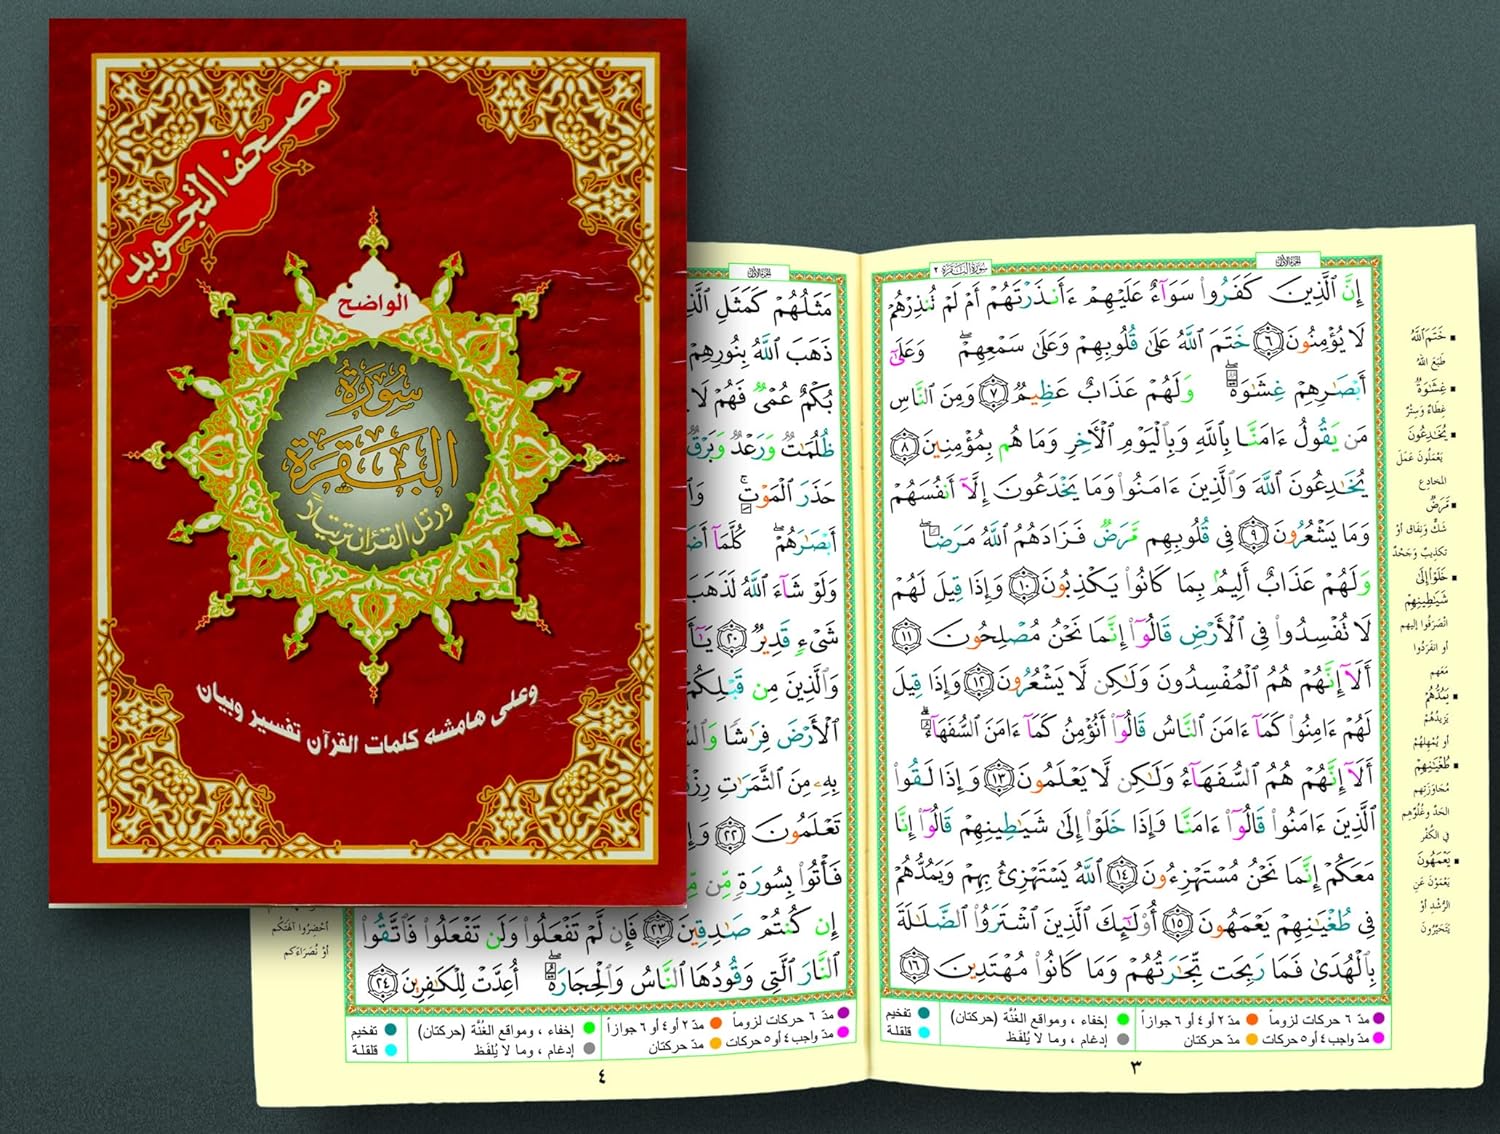 مصحف التجويد
الواضح
سُورَةُ
البَقَرَة
ورتل القرآن ترتيلاً
وعلى هامشه كلمات القرآن تفسير وبيان
سُورَةُ البَقَرَة ٢
الجزء الأول
إِنَّ ٱلَّذِينَ كَفَرُوا۟ سَوَآءٌ عَلَيْهِمْ ءَأَنذَرْتَهُمْ أَمْ لَمْ تُنذِرْهُمْ
لَا يُؤْمِنُونَ ٦ خَتَمَ ٱللَّهُ عَلَىٰ قُلُوبِهِمْ وَعَلَىٰ سَمْعِهِمْ ۖ وَعَلَىٰٓ
أَبْصَـٰرِهِمْ غِشَـٰوَةٌ ۖ وَلَهُمْ عَذَابٌ عَظِيمٌ ٧ وَمِنَ ٱلنَّاسِ
مَن يَقُولُ ءَامَنَّا بِٱللَّهِ وَبِٱلْيَوْمِ ٱلْـَٔاخِرِ وَمَا هُم بِمُؤْمِنِينَ ٨
يُخَـٰدِعُونَ ٱللَّهَ وَٱلَّذِينَ ءَامَنُوا۟ وَمَا يَخْدَعُونَ إِلَّآ أَنفُسَهُمْ
وَمَا يَشْعُرُونَ ٩ فِى قُلُوبِهِم مَّرَضٌ فَزَادَهُمُ ٱللَّهُ مَرَضًا ۖ
وَلَهُمْ عَذَابٌ أَلِيمٌۢ بِمَا كَانُوا۟ يَكْذِبُونَ ١٠ وَإِذَا قِيلَ لَهُمْ
لَا تُفْسِدُوا۟ فِى ٱلْأَرْضِ قَالُوٓا۟ إِنَّمَا نَحْنُ مُصْلِحُونَ ١١
أَلَآ إِنَّهُمْ هُمُ ٱلْمُفْسِدُونَ وَلَـٰكِن لَّا يَشْعُرُونَ ١٢ وَإِذَا قِيلَ
لَهُمْ ءَامِنُوا۟ كَمَآ ءَامَنَ ٱلنَّاسُ قَالُوٓا۟ أَنُؤْمِنُ كَمَآ ءَامَنَ ٱلسُّفَهَآءُ ۗ
أَلَآ إِنَّهُمْ هُمُ ٱلسُّفَهَآءُ وَلَـٰكِن لَّا يَعْلَمُونَ ١٣ وَإِذَا لَقُوا۟
ٱلَّذِينَ ءَامَنُوا۟ قَالُوٓا۟ ءَامَنَّا وَإِذَا خَلَوْا۟ إِلَىٰ شَيَـٰطِينِهِمْ قَالُوٓا۟ إِنَّا
مَعَكُمْ إِنَّمَا نَحْنُ مُسْتَهْزِءُونَ ١٤ ٱللَّهُ يَسْتَهْزِئُ بِهِمْ وَيَمُدُّهُمْ
فِى طُغْيَـٰنِهِمْ يَعْمَهُونَ ١٥ أُو۟لَـٰٓئِكَ ٱلَّذِينَ ٱشْتَرَوُا۟ ٱلضَّلَـٰلَةَ
بِٱلْهُدَىٰ فَمَا رَبِحَت تِّجَـٰرَتُهُمْ وَمَا كَانُوا۟ مُهْتَدِينَ ١٦
خَتَمَ اللهُ
طَبَعَ اللهُ
غِشَـٰوَةٌ
غِطَاءٌ وَسِتْرٌ
يُخَـٰدِعُونَ
يَعْمَلُونَ عَمَلَ
المخادِع
مَرَضٌ
شَكٌّ وَنِفَاق أَوْ
تَكْذِيبٌ وَجَحْدٌ
خَلَوْا إِلَىٰ
شَيَـٰطِينِهِمْ
انْصَرَفُوا إليهم
أو انفَرَدُوا
مَعَهم
يَمُدُّهُمْ
يَزيدُهُمْ
أو يُمْهِلهُمْ
طُغْيَـٰنِهِمْ
مُجَاوَزَتِهم
الحَدَّ وغُلُوِّهِم
في الكُفْر
يَعْمَهُونَ
يَعْمَوْنَ عَنِ
الرُّشْدِ أوْ
يَتَحَيَّرُونَ
مدّ ٦ حركات لزوماً مدّ ٢ أو ٤ أو ٦ جوازاً إخفاء ، ومواقع الغُنَّة (حركتان) تفخيم
مدّ واجب ٤ أو ٥ حركات مدّ حركتان إدغام ، وما لا يُلفَظ قلقلة
٣
الجزء الأول
مَثَلُهُمْ كَمَثَلِ
ذَهَبَ ٱللَّهُ بِنُورِهِمْ
بُكْمٌ عُمْىٌ فَهُمْ لَا
ظُلُمَـٰتٌ وَرَعْدٌ وَبَرْقٌ
حَذَرَ ٱلْمَوْتِ ۚ
أَبْصَـٰرَهُمْ ۖ كُلَّمَآ
وَلَوْ شَآءَ ٱللَّهُ لَذَهَبَ
شَىْءٍ قَدِيرٌ ٢٠
وَٱلَّذِينَ مِن قَبْلِكُمْ
ٱلْأَرْضَ فِرَٰشًا
بِهِۦ مِنَ ٱلثَّمَرَٰتِ
تَعْلَمُونَ ٢٢
فَأْتُوا۟ بِسُورَةٍ مِّن
إِن كُنتُمْ صَـٰدِقِينَ ٢٣ فَإِن لَّمْ تَفْعَلُوا۟ وَلَن تَفْعَلُوا۟ فَٱتَّقُوا۟
ٱلنَّارَ ٱلَّتِى وَقُودُهَا ٱلنَّاسُ وَٱلْحِجَارَةُ ۖ أُعِدَّتْ لِلْكَـٰفِرِينَ ٢٤
أحْضِرُوا آلهَتَكُم
أوْ نُصَرَاءَكم
مدّ ٦ حركات لزوماً مدّ ٢ أو ٤ أو ٦ جوازاً إخفاء ، ومواقع الغُنَّة (حركتان) تفخيم
مدّ واجب ٤ أو ٥ حركات مدّ حركتان إدغام ، وما لا يُلفَظ قلقلة
٤